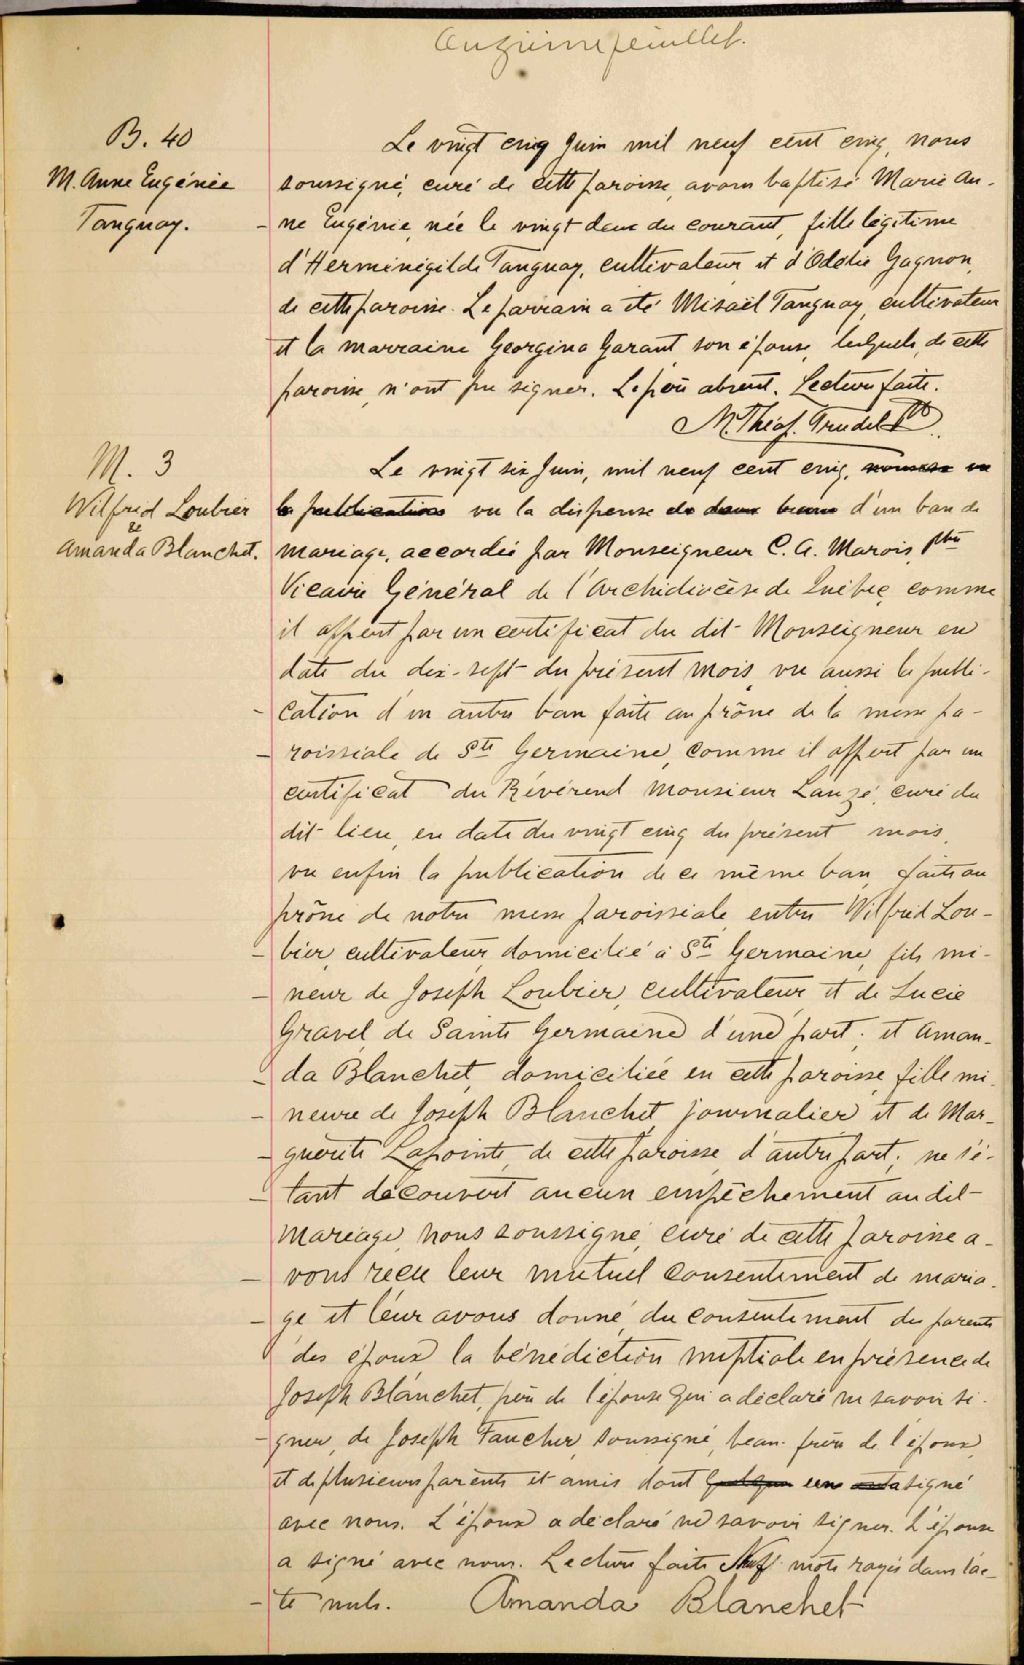 Onzième feuillet.
B. 40
M. Anne Eugénie
Tanguay.
Le vingt cinq Juin mil neuf cent cinq, nous
soussigné, curé de cette paroisse, avons baptisé Marie An-
ne Eugénie, née le vingt deux du courant, fille légitime
d'Herménégilde Tanguay, cultivateur et d'Odélie Gagnon,
de cette paroisse. Le parrain a été Misaël Tanguay, cultivateur
et la marraine Georgina Garant son épouse, lesquels, de cette
paroisse, n'ont pu signer. Le père absent. Lecture faite.
M. Théop. Trudel Ptre
M. 3
Wilfrid Loubier
&
Amanda Blanchet.
Le vingt six Juin, mil neuf cent cinq,
la publication vu la dispense de deux bans d'un ban de
mariage, accordée par Monseigneur C. A. Marois, ptre
Vicaire Général de l'Archidiocèse de Québec, comme
il appert par un certificat du dit Monseigneur en
date du dix-sept du présent mois, vu aussi la publi-
cation d'un autre ban faite au prône de la messe pa-
roissiale de Ste Germaine, comme il appert par un
certificat du Révérend Monsieur Lauzé, curé du
dit lieu, en date du vingt cinq du présent mois,
vu enfin la publication de ce même ban, faite au
prône de notre messe paroissiale, entre Wilfrid Lou-
bier, cultivateur, domicilié à Ste Germaine, fils mi-
neur de Joseph Loubier, cultivateur et de Lucie
Gravel, de Sainte Germaine d'une part; et Aman-
da Blanchet, domiciliée en cette paroisse, fille mi-
neure de Joseph Blanchet, journalier et de Mar-
guerite Lapointe, de cette paroisse, d'autre part; ne s'é-
tant découvert aucun empêchement au dit
mariage, nous soussigné, curé de cette paroisse a-
vons reçu leur mutuel consentement de maria-
ge et leur avons donné, du consentement des parents
des époux la bénédiction nuptiale en présence de
Joseph Blanchet, père de l'épouse qui a déclaré ne savoir si-
gner, de Joseph Faucher, soussigné, beau-frère de l'époux,
et de plusieurs parents et amis dont quelques uns ont a signé
avec nous. L'époux a déclaré ne savoir signer. L'épouse
a signé avec nous. Lecture faite. Neuf mots rayés dans l'ac-
te nuls. Amanda Blanchet